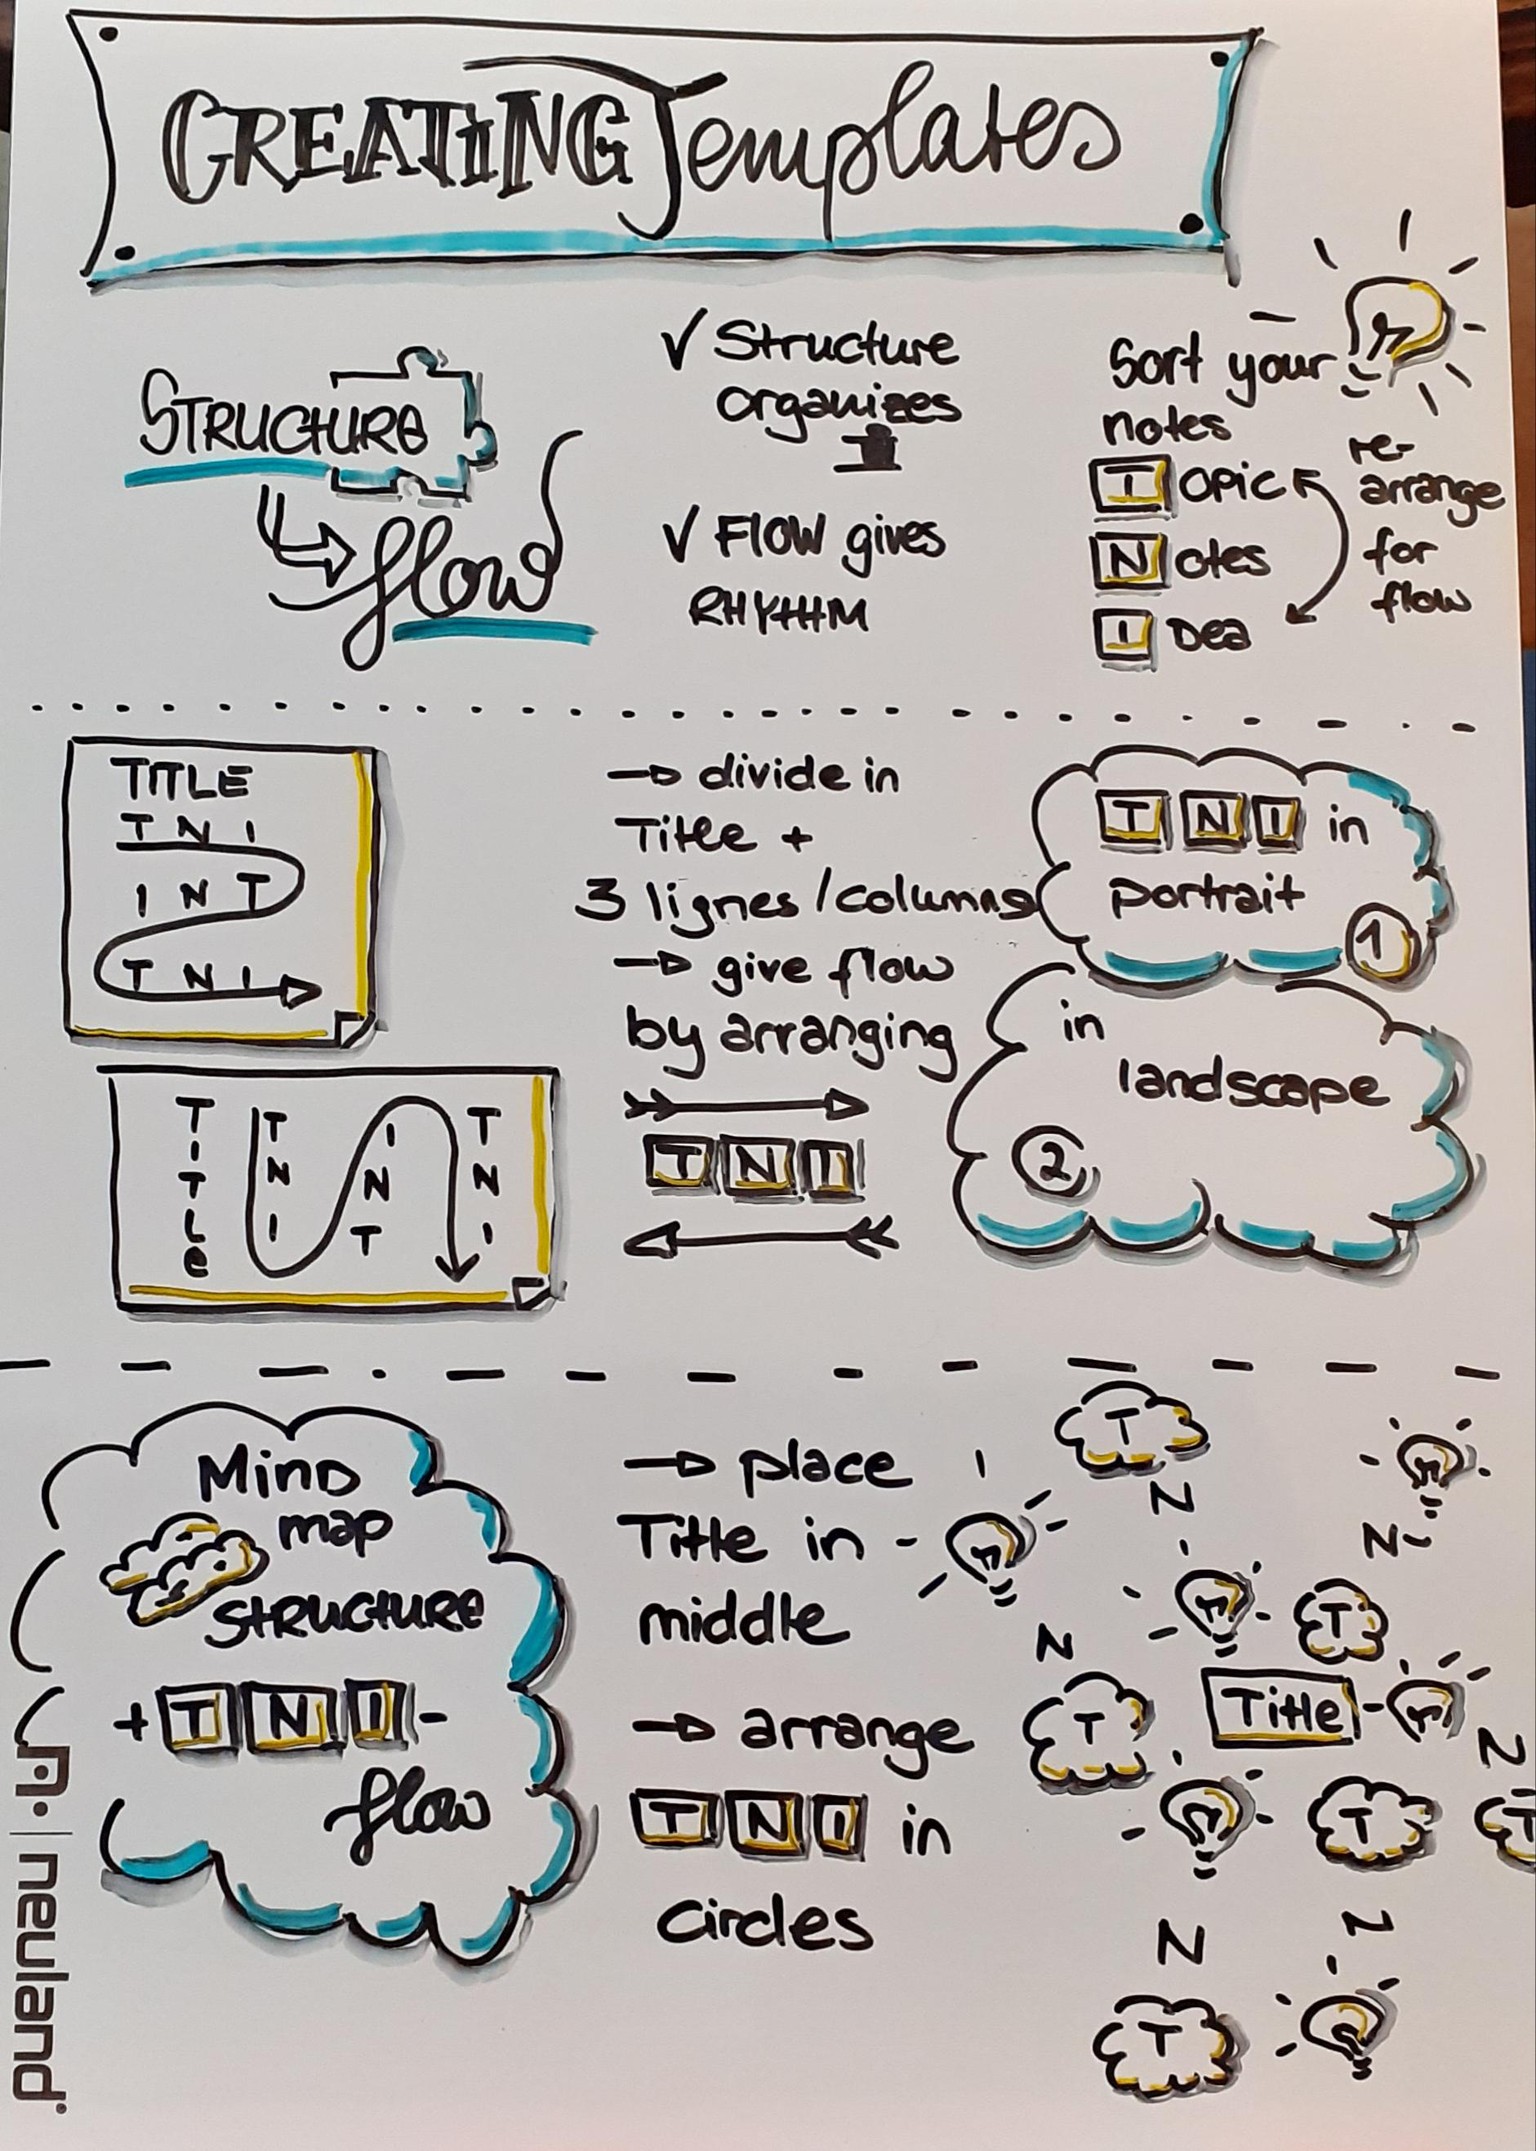 CREATING Templates
STRUCTURE
flow
✓ Structure
organizes
✓ FLOW gives
RHYTHM
Sort your
notes
Topic
Notes
IDea
re-
arrange
for
flow
TITLE
T N I
I N T
T N I
TITLe
T N I
I N T
T N I
→ divide in
Title +
3 lignes/columns
→ give flow
by arranging
T N I
T N I in
portrait
1
in
landscape
2
MinD
map
STRUCTURE
+ T N I -
flow
→ place
Title in
middle
→ arrange
T N I in
circles
T
N
N
T
N
T
Title
N
T
T
N
N
T
neuland